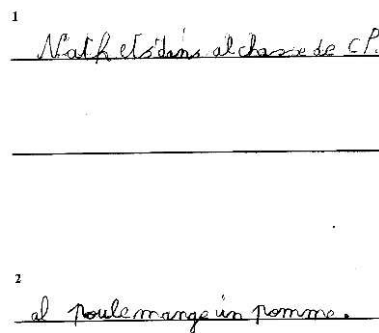 1
Nath ets dans al chasse de CP.
2
al poule mange un pomme.